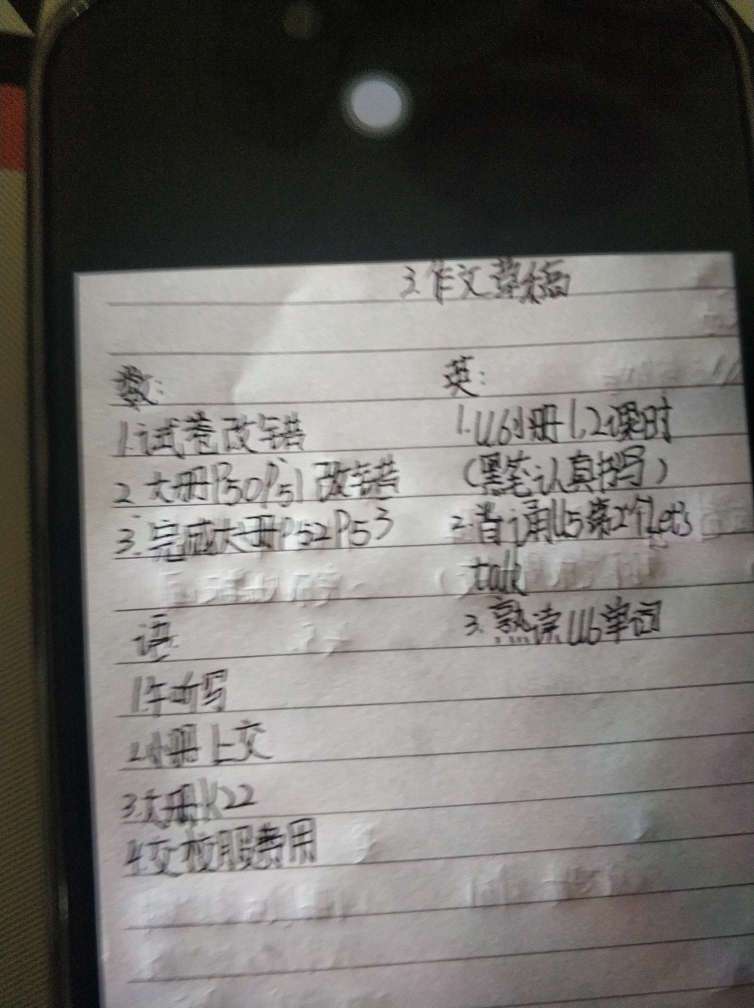 3.作文草稿
数:
1.试卷改错
2.大册P50P51改错
3.完成大册P52P53
语:
1.午听写
2.小册上交
3.大册K22
4.交校服费用
英:
1.U6小册1,2课时
(黑笔认真书写)
2.背诵U5第2个Let's
talk
3.熟读U6单词